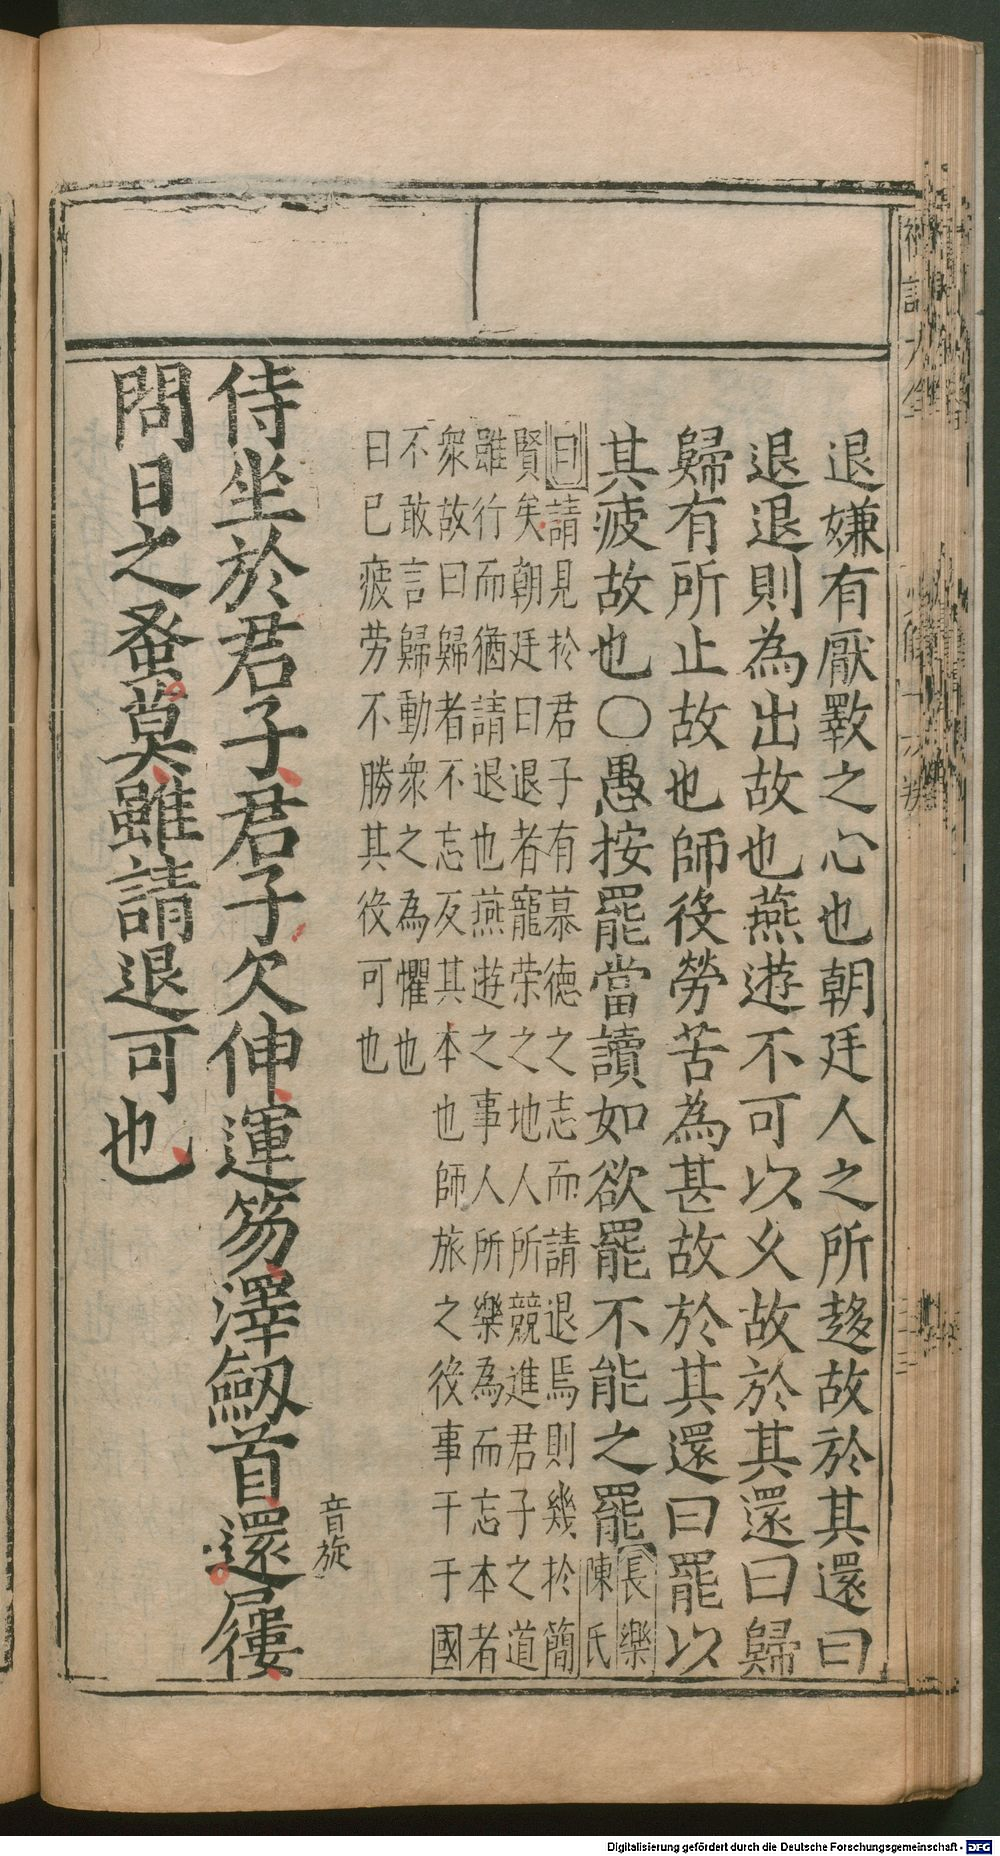 退嫌有厭斁之心也朝廷人之所趍故於其還曰
退退則為出故也燕遊不可以久故於其還曰歸
歸有所止故也師役勞苦為甚故於其還曰罷以
其疲故也〇愚按罷當讀如欲罷不能之罷長樂
陳氏
曰請見於君子有慕德之志而請退焉則幾於簡
賢矣朝廷曰退者寵荣之地人所競進君子之道
雖行而猶請退也燕遊之事人所樂為而忘本者
衆故曰歸者不忘反其本也師旅之役事干于國
不敢言歸動衆之為懼也
曰已疲劳不勝其役可也
侍坐於君子君子欠伸運笏澤劒首還音旋屨
問日之蚤莫雖請退可也
Digitalisierung gefördert durch die Deutsche Forschungsgemeinschaft - DFG